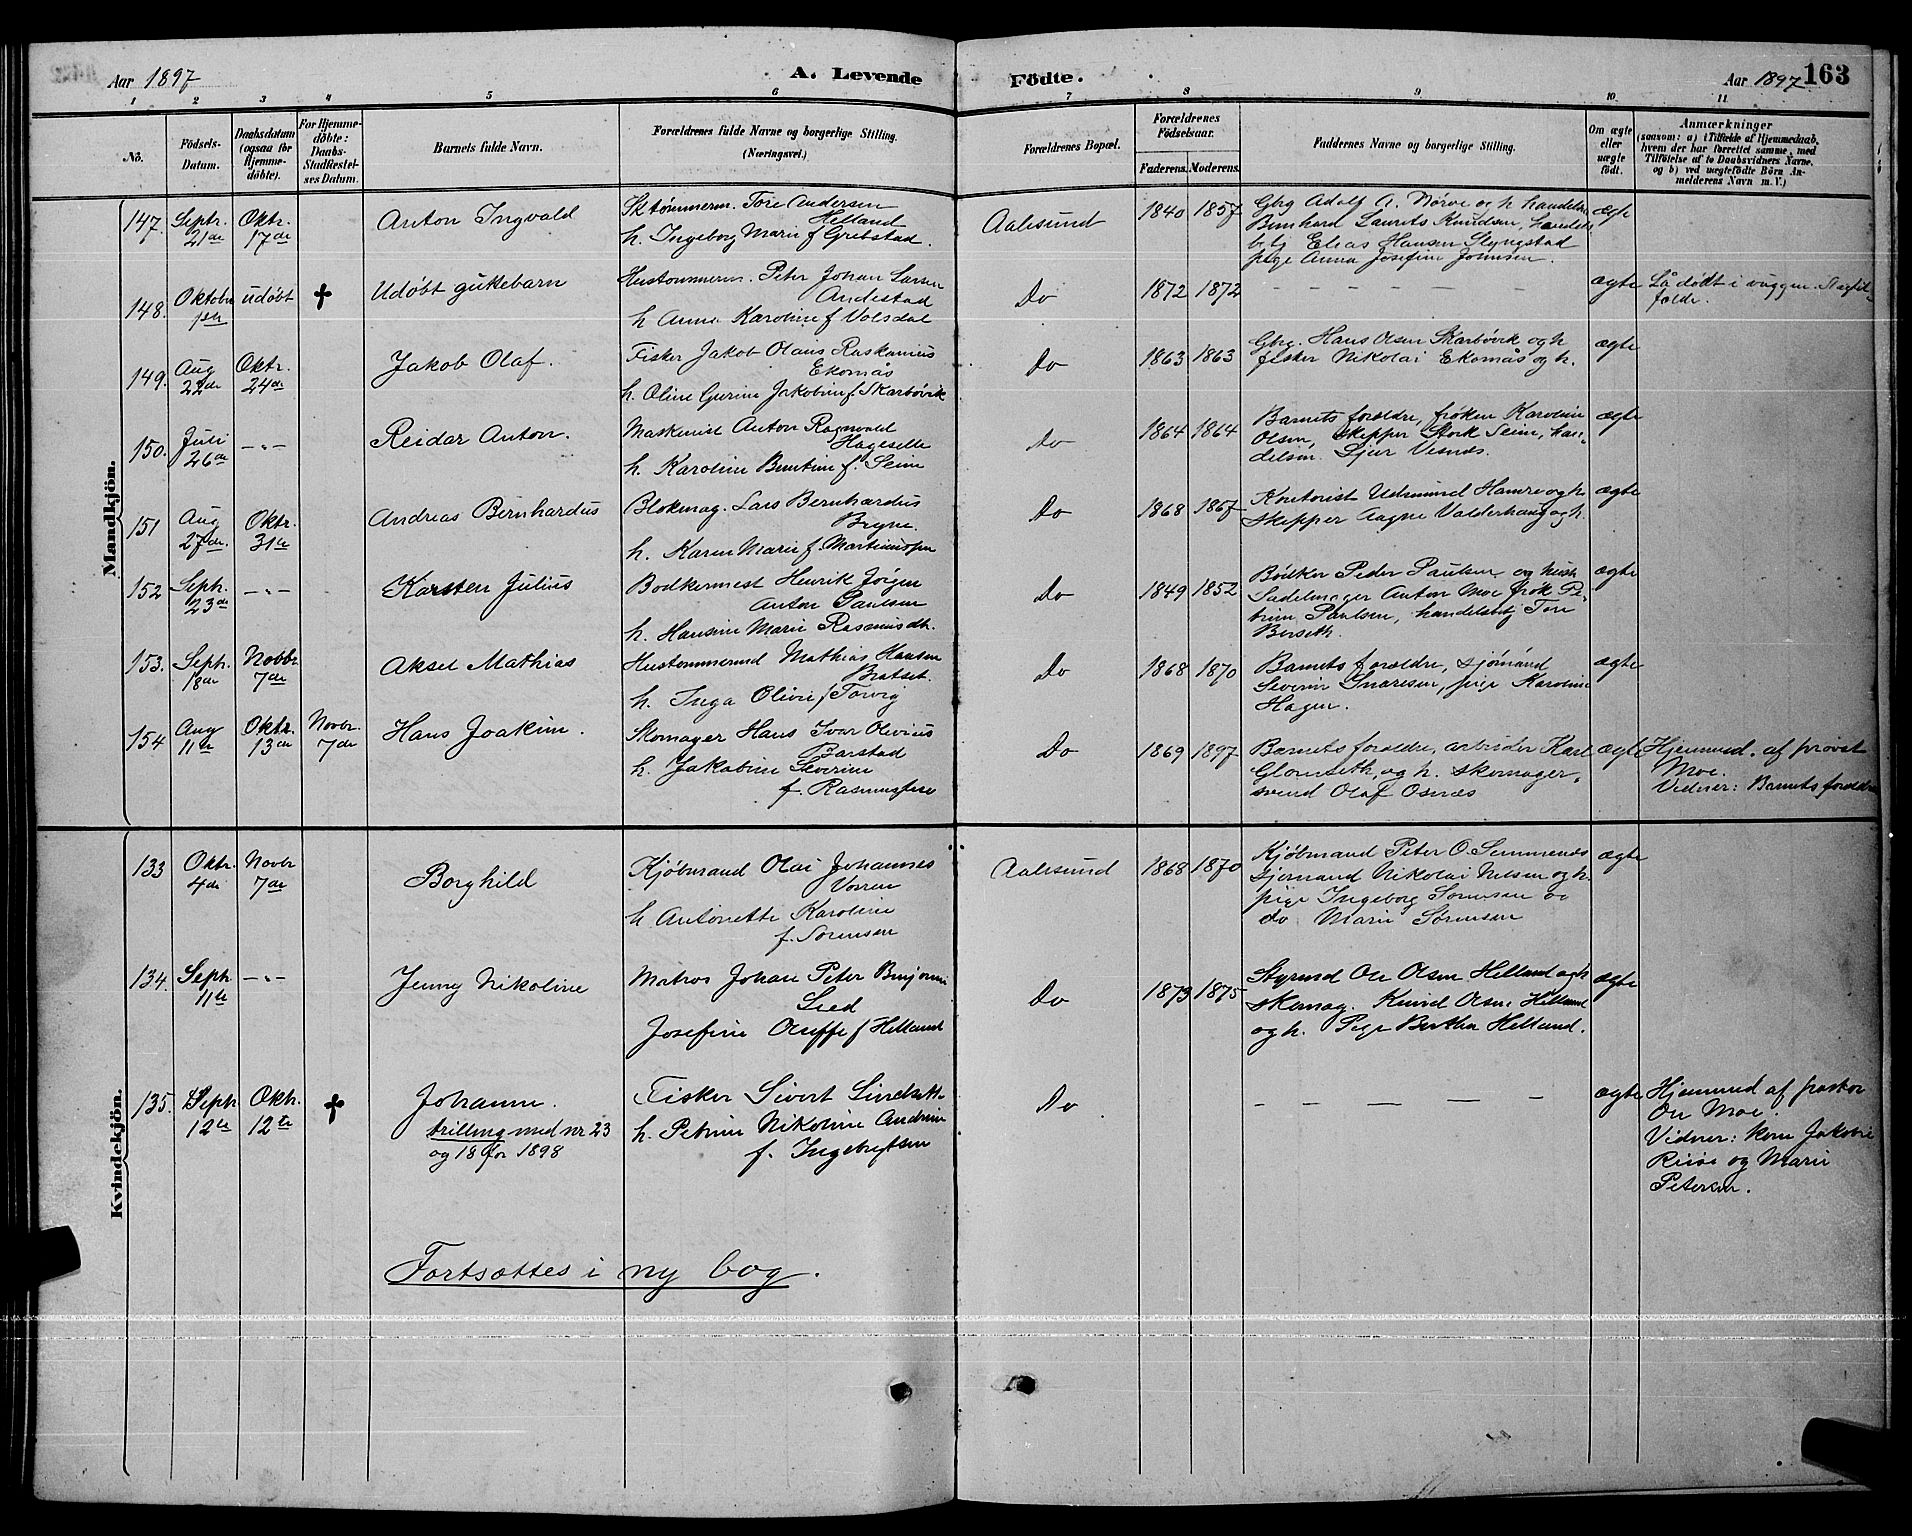 Aar 1897 A. Levende Födte. Aar 1897 163
1 2 3 4 5 6 7 8 9 10 11
No.
Födsels-Datum.
Daabsdatum (ogsaa for Hjemme-döbte).
For Hjemme-döbte: Daabs-Stadfæstel-ses Datum.
Barnets fulde Navn.
Forældrenes fulde Navne og borgerlige Stilling.
(Næringsvei.)
Forældrenes Bopæl.
Forældrenes Födselsaar.
Faderens. Moderens.
Faddernes Navne og borgerlige Stilling.
Om ægte eller uægte födt.
Anmærkninger
(saasom: a) i Tilfælde af Hjemmedaab,
hvem der har forrettet samme, med
Tilföielse af to Daabsvidners Navne,
og b) ved uægtefödte Börn An-
melderens Navn m. V.)
Mandkjön.
147. Septr. 21de Oktr. 17de Anton Ingvald
Sktømmerm. Tore Andersen
Helland
h. Ingeborg Marie f Grebstad.
Aalesund 1840 1857
Gbrg Adolf A. Nørve og h handelsm
Bernhard Laurits Knudsen, handels
btj Elias Hansen Slyngstad
pige Anna Josefine Johnsen.
ægte
148. Oktobr 1ste udøbt ✝ Udøbt guttebarn
Hustømmerm. Peter Johan Larsen
Andestad
h Anna Karoline f Volsdal
Do 1872 1872 – – – – – – ægte
Lå dødt i vuggen.
149. Aug 22de Oktr. 24de Jakob Olaf.
Fisker Jakob Olaus Raskanius
Ekornås
h. Oline Gurine Jakobine f. Skarbøvik
Do 1863 1863
Gbrg. Hans Olsen Skarbøvik og h
fisker Nikolai Ekornås og h.
ægte
150. Juli 26de –"– Reidar Anton.
Maskinist Anton Ragnvald
Hageselle
h. Karoline Berntine f. Seim
Do 1864 1864
Barnets forældre, frøken Karoline
Olsen, skipper Stork Seim, han-
delsm. Sjur Visnes.
ægte
151 Aug 27de. Oktr. 31te Andreas Bernhardus
Blokmag. Lars Bernhardus
Bryne.
h. Karen Marie f. Martinussen
Do 1868 1867
Kontorist Udmund Hamre og h.
skipper Aagne Valderhaug og h.
ægte
152 Septr. 23de –"– Karsten Julius
Bødkermest Henrik Jørgen
Anton Paulsen
h. Hansine Marie Rasmusdtr.
Do 1849 1852
Bødker Peder Paulsen og hust
Sadelmager Anton Moe frøk Pe-
trine Paulsen, handelsbtj Tore
Berseth.
ægte
153. Septr. 18de Novbr 7de Aksel Mathias
Hustømmersvd Mathias Hansen
Bratset.
h. Inga Olivie f Torvig
Do 1868 1870
Barnets forældre, sjømand
Severin Snaresen, pige Karoline
Hagen.
ægte
154 Aug 11te Oktr. 13de Novbr. 7de Hans Joakim.
Skomager Hans Ivar Olivius
Barstad
h. Jakobine Severine
f. Rasmussen
Do 1869 1897
Barnets forældre, arbeider Karl
Glomseth, og h. skomager-
svend Olaf Osnes
ægte
Hjemmed. af provst
Moe.
Vidner: Barnets forældre
Kvindekjön.
133 Oktr. 4de Novbr 7de Borghild
Kjøbmand Olai Johannes
Vorren
h Antonette Karoline
f. Sørensen
Aalesund 1868 1870
Kjøbmand Peter O.
sjømand Nikolai Nilsen og h.
pige Ingeborg Sørensen og
do Marie Sørensen
ægte
134. Septr 11te –"– Jenny Nikoline
Matros Johan Peter Benjamin
Lied
Josefine f Helland
Do 1873 1875
Styrmd Ole Olsen Helland og h
skomag. Knud Olsen Helland
og h. Pige Berthe Helland.
ægte
135. Septr 12te Oktr. 12te ✝ Johanne.
trilling med nr 23
og 18 for 1898
Fisker Sivert
h. Petrine Nikoline Andrine
f. Ingebrigtsen
Do – – – – – ægte
Hjemmed af pastor
Ole Moe.
Vidner: kone Jakobie
Riise og Marie
Petersen.
Fortsættes i ny bog.